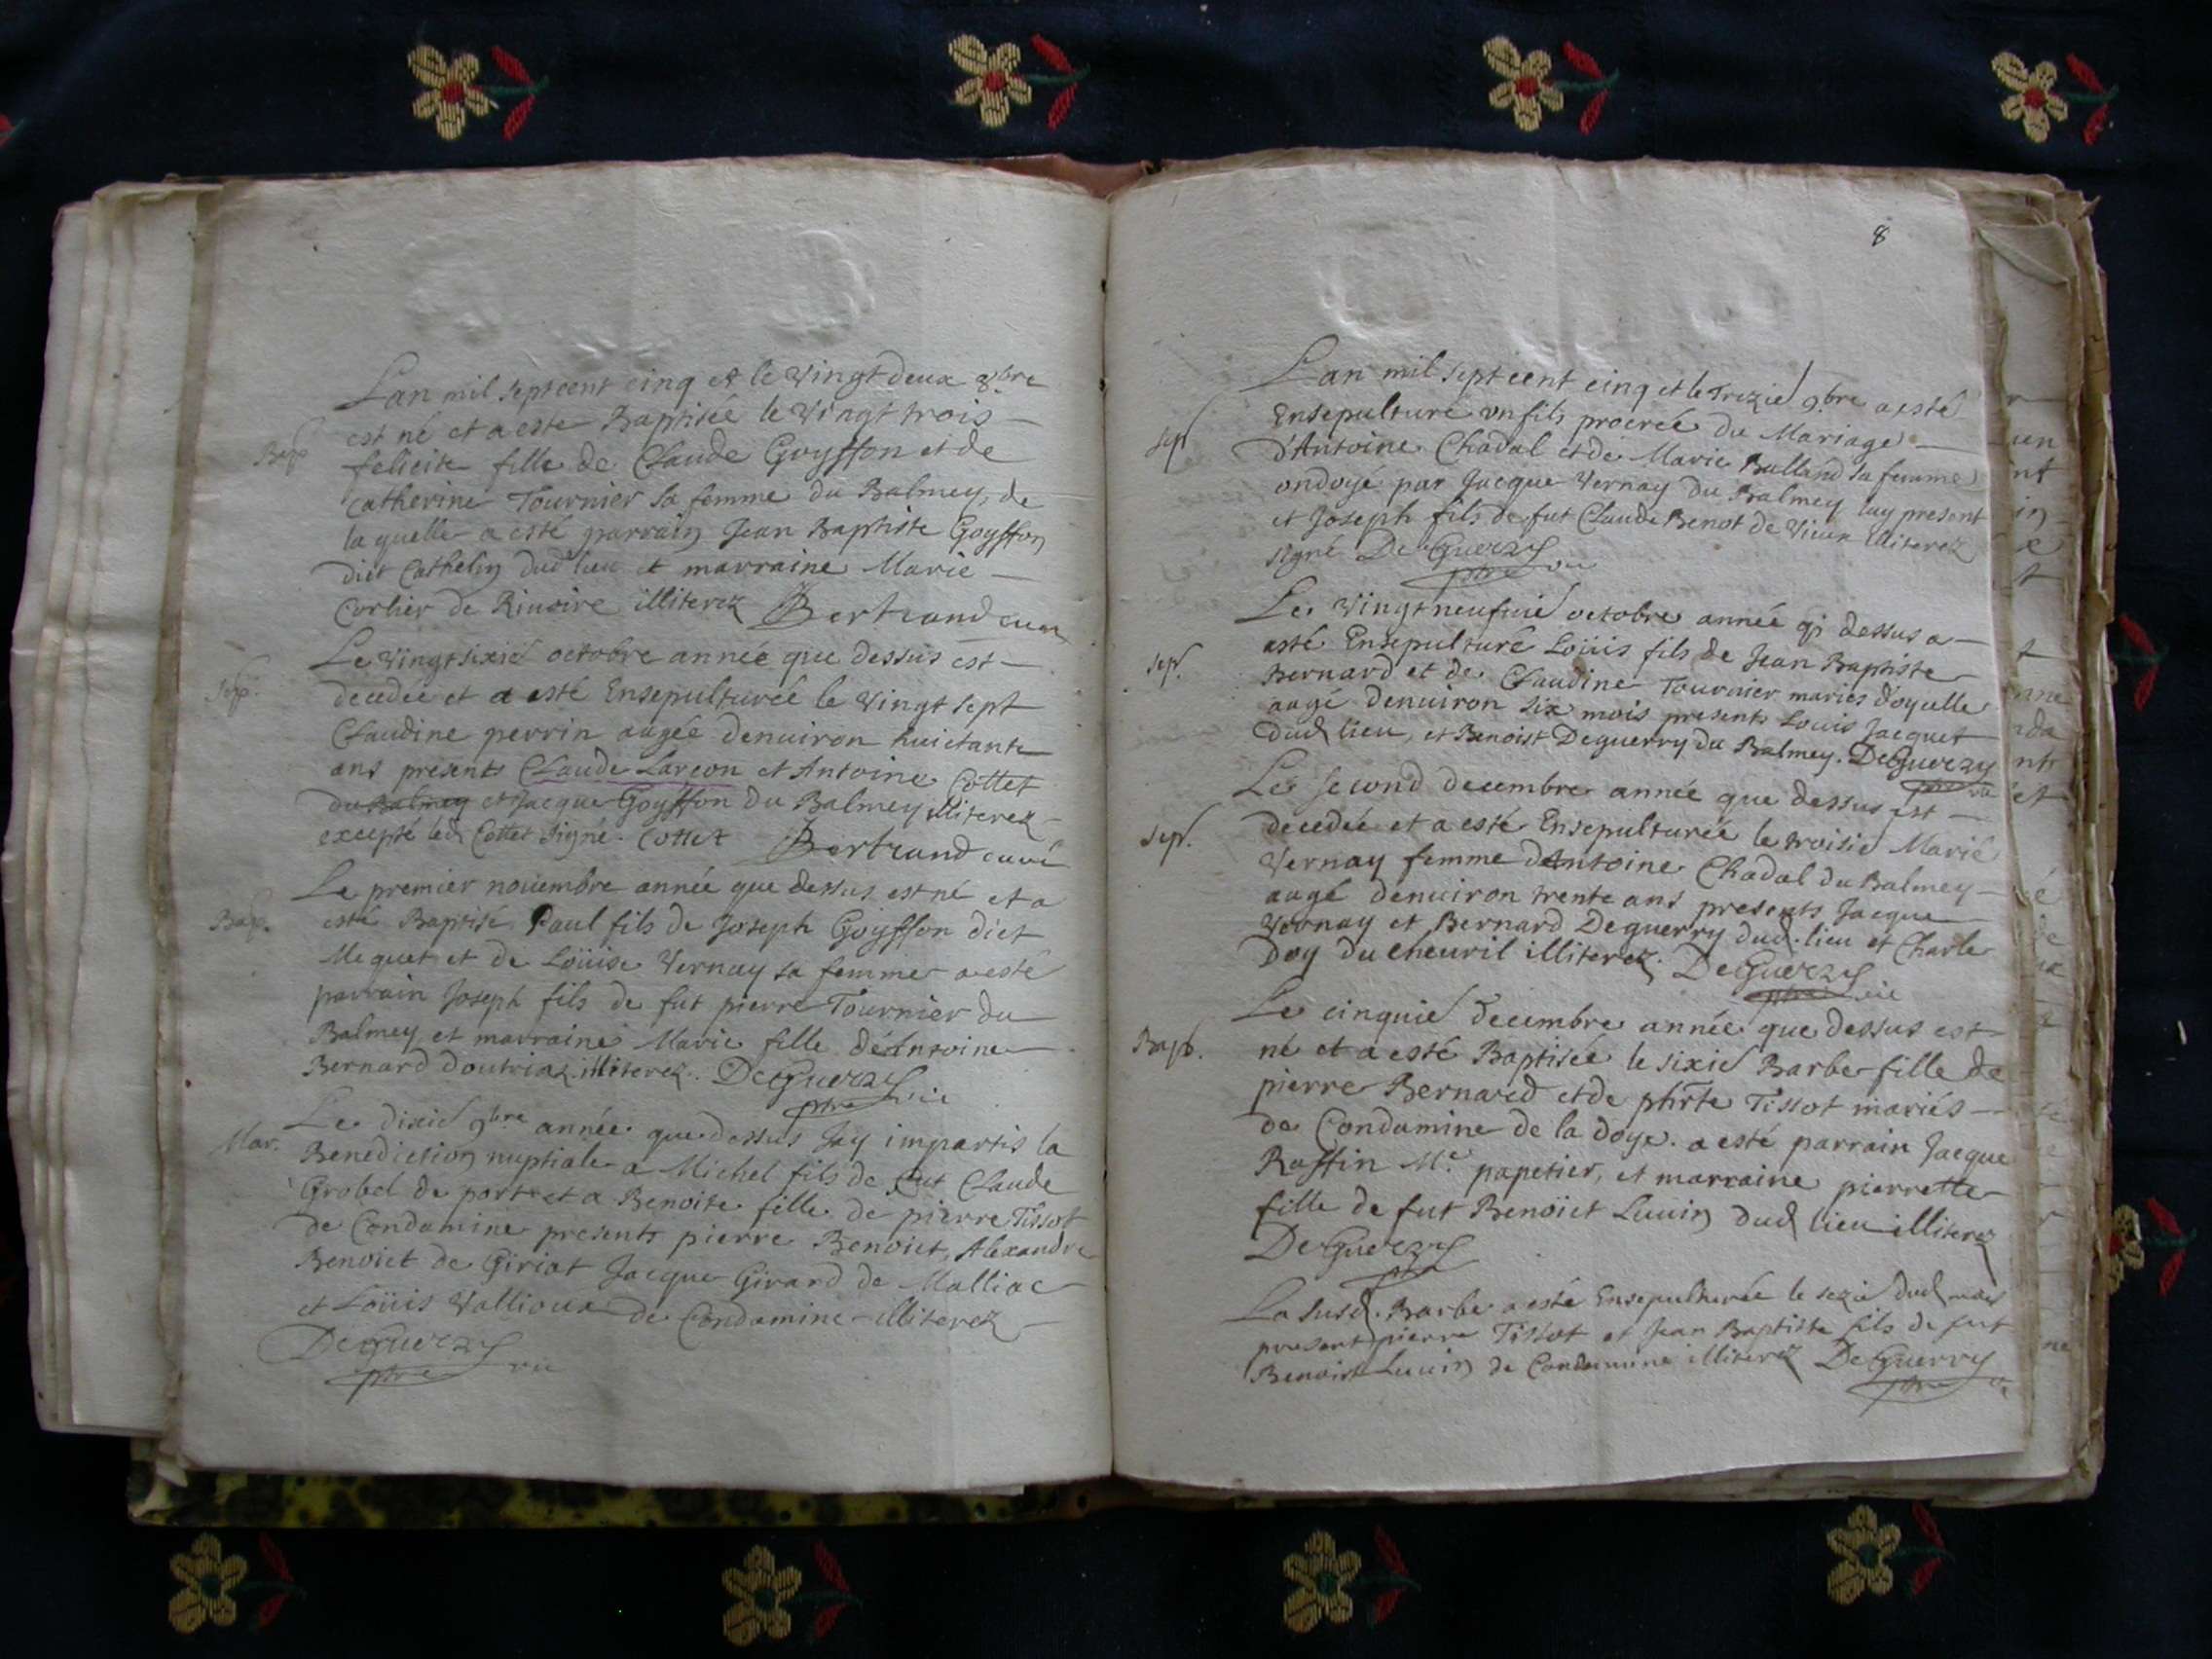 Lan mil septcent cinq et le vingt deux 8bre
Bap
est né et a este Baptisée le vingt trois
felicite fille de Claude Goyffon et de
catherine Tournier sa femme du Balmey, de
la quelle a esté parrain Jean Baptiste Goyffon
dict Cathelin dud lieu et marraine Marie
Corlier de Riuoire illiterez Bertrand curé
Le vingtsixie octobre année que dessus est
Sep.
decedée et a esté Ensepulturée le vingt sept
Claudine perrin augée denuiron huictante
ans presents Claude Larcon et Antoine Cottet
du Balmey et Jacque Goyffon du Balmey illiterez
excepté led Cottet signé. Cottet Bertrand curé
Le premier nouembre année que dessus est né et a
Bap.
esté Baptisé Paul fils de Joseph Goyffon dict
Mequet et de Loüise Vernay sa femme a esté
parrain Joseph fils de fut pierre Tournier du
Balmey et marraine Marie fille de Antoine
Bernard Doutriaz illiterez. DeGuerry
ptre vic
Le dixie 9bre année que dessus Jay impartis la
Mar.
Benediction nuptiale a Michel fils de fut Claude
Grobel de port et a Benoite fille de pierre Tissot
de Condamine presents pierre Benoict, Alexandre
Benoict de Giriat Jacque Girard de Malliac
et Loüis Vallioux de Condamine illiterez
DeGuerry
ptre vic
8
Lan mil septcent cinq et le Trezie 9bre a esté
Sep
Ensepulturé un fils procréé du Mariage
d'Antoine Chadal et de Marie Balland sa femme
ondoyé par Jacque Vernay du Balmey luy present
et Joseph fils de fut Claude Benot de Vieux illiterez
signé DeGuerry
ptre vic
Le vingtneufuie octobre année q dessus a
sep.
esté Ensepulturé Loüis fils de Jean Baptiste
Bernard et de Claudine Tournier maries doyelle
augé denuiron six mois presents Louis Jacquet
dud lieu, et Benoist Deguerry du Balmey. DeGuerry
ptre vic
Le second decembre année que dessus est
Sep.
decedée et a esté Ensepulturée le troisie Marie
Vernay femme dAntoine Chadal du Balmey
augé denuiron trente ans presents Jacque
Vernay et Bernard Deguerry dud. lieu et Charle
Doy du cheuril illiterez. DeGuerry
ptre vic
Le cinquie decembre année que dessus est
Bap.
né et a esté Baptisée le sixie Barbe fille de
pierre Bernard et de phrte Tissot mariés
de Condamine de la doye. a esté parrain Jacque
Raffin Me. papetier, et marraine pierrette
fille de fut Benoict Luuin dud lieu illiterez
DeGuerry
ptre
La susd. Barbe a esté Ensepulturée le sezie dud mois
present pierre Tissot et Jean Baptiste fils de fut
Benoist Luuin de Condamine illiterez DeGuerry
ptre vic